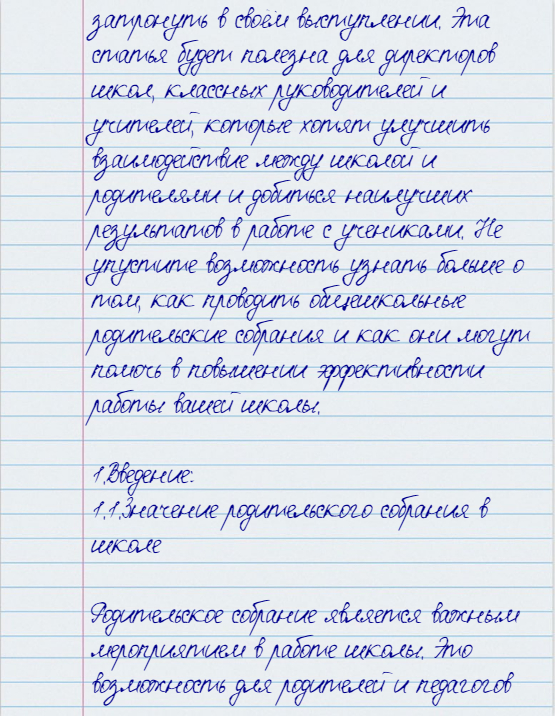 затронуть в своём выступлении. Эта
статья будет полезна для директоров
школ, классных руководителей и
учителей, которые хотят улучшить
взаимодействие между школой и
родителями и добиться наилучших
результатов в работе с учениками. Не
упустите возможность узнать больше о
том, как проводить общешкольные
родительские собрания и как они могут
помочь в повышении эффективности
работы вашей школы.
1.Введение:
1.1.Значение родительского собрания в
школе
Родительское собрание является важным
мероприятием в работе школы. Это
возможность для родителей и педагогов